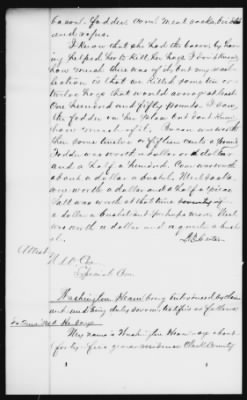 bacon. fodder, corn, meat
and
I know that she had the bacon by hav
ing helped her to kill her hogs I don't know
how much there was of it but my
is that we killed some ten or
twelve hogs that would average at least
One hundred and fifty pounds. I saw
the fodder on her place but don't know
how much of it. Bacon was worth
then some twelve or fifteen cents a pound
Fodder was worth a dollar or a dollar
and a half a hundred. Corn was worth
about a dollar a bushel,
were worth a dollar and a half a piece
Salt was worth at that time
a dollar a bushel and perhaps more
was worth a dollar and a quarter a bush
el.
Attest
Special Com
Washington being introduced by claim
ant and being duly sworn, testifies as follows
My name is Washington my age about
forty five years residence Clark County